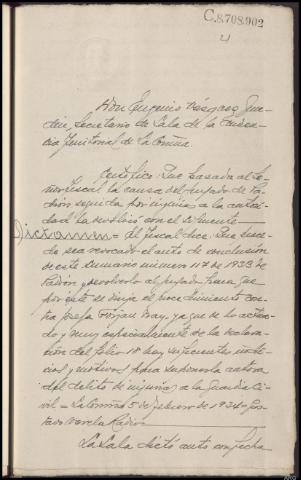 C.8.708.902
4
Don Eugenio Vázquez Gun-
din, Secretario de Sala de la Audien-
cia Territorial de La Coruña
Certifico: Que pasada al Se-
ñor Fiscal la causa del Juzgado de Pa-
drón seguida por injurias a la autori-
dad la devolvió con el siguiente
Dictamen = El Fiscal dice: Que
sea revocado el auto de conclusión
de este sumario número 117 de 1933 de
Padrón y devolverlo al Juzgado para que
por este se dirija el procedimiento con-
tra Josefa Bray, ya que de lo actua-
do y muy especialmente de la declara-
ción del folio 18 hay suficientes indi-
cios y motivos para suponerla autora
del delito de injurias a la Guardia Ci-
vil = La Coruña 5 de Febrero de 1934 = Gus-
tavo Varela Radío
La Sala dictó auto con fecha